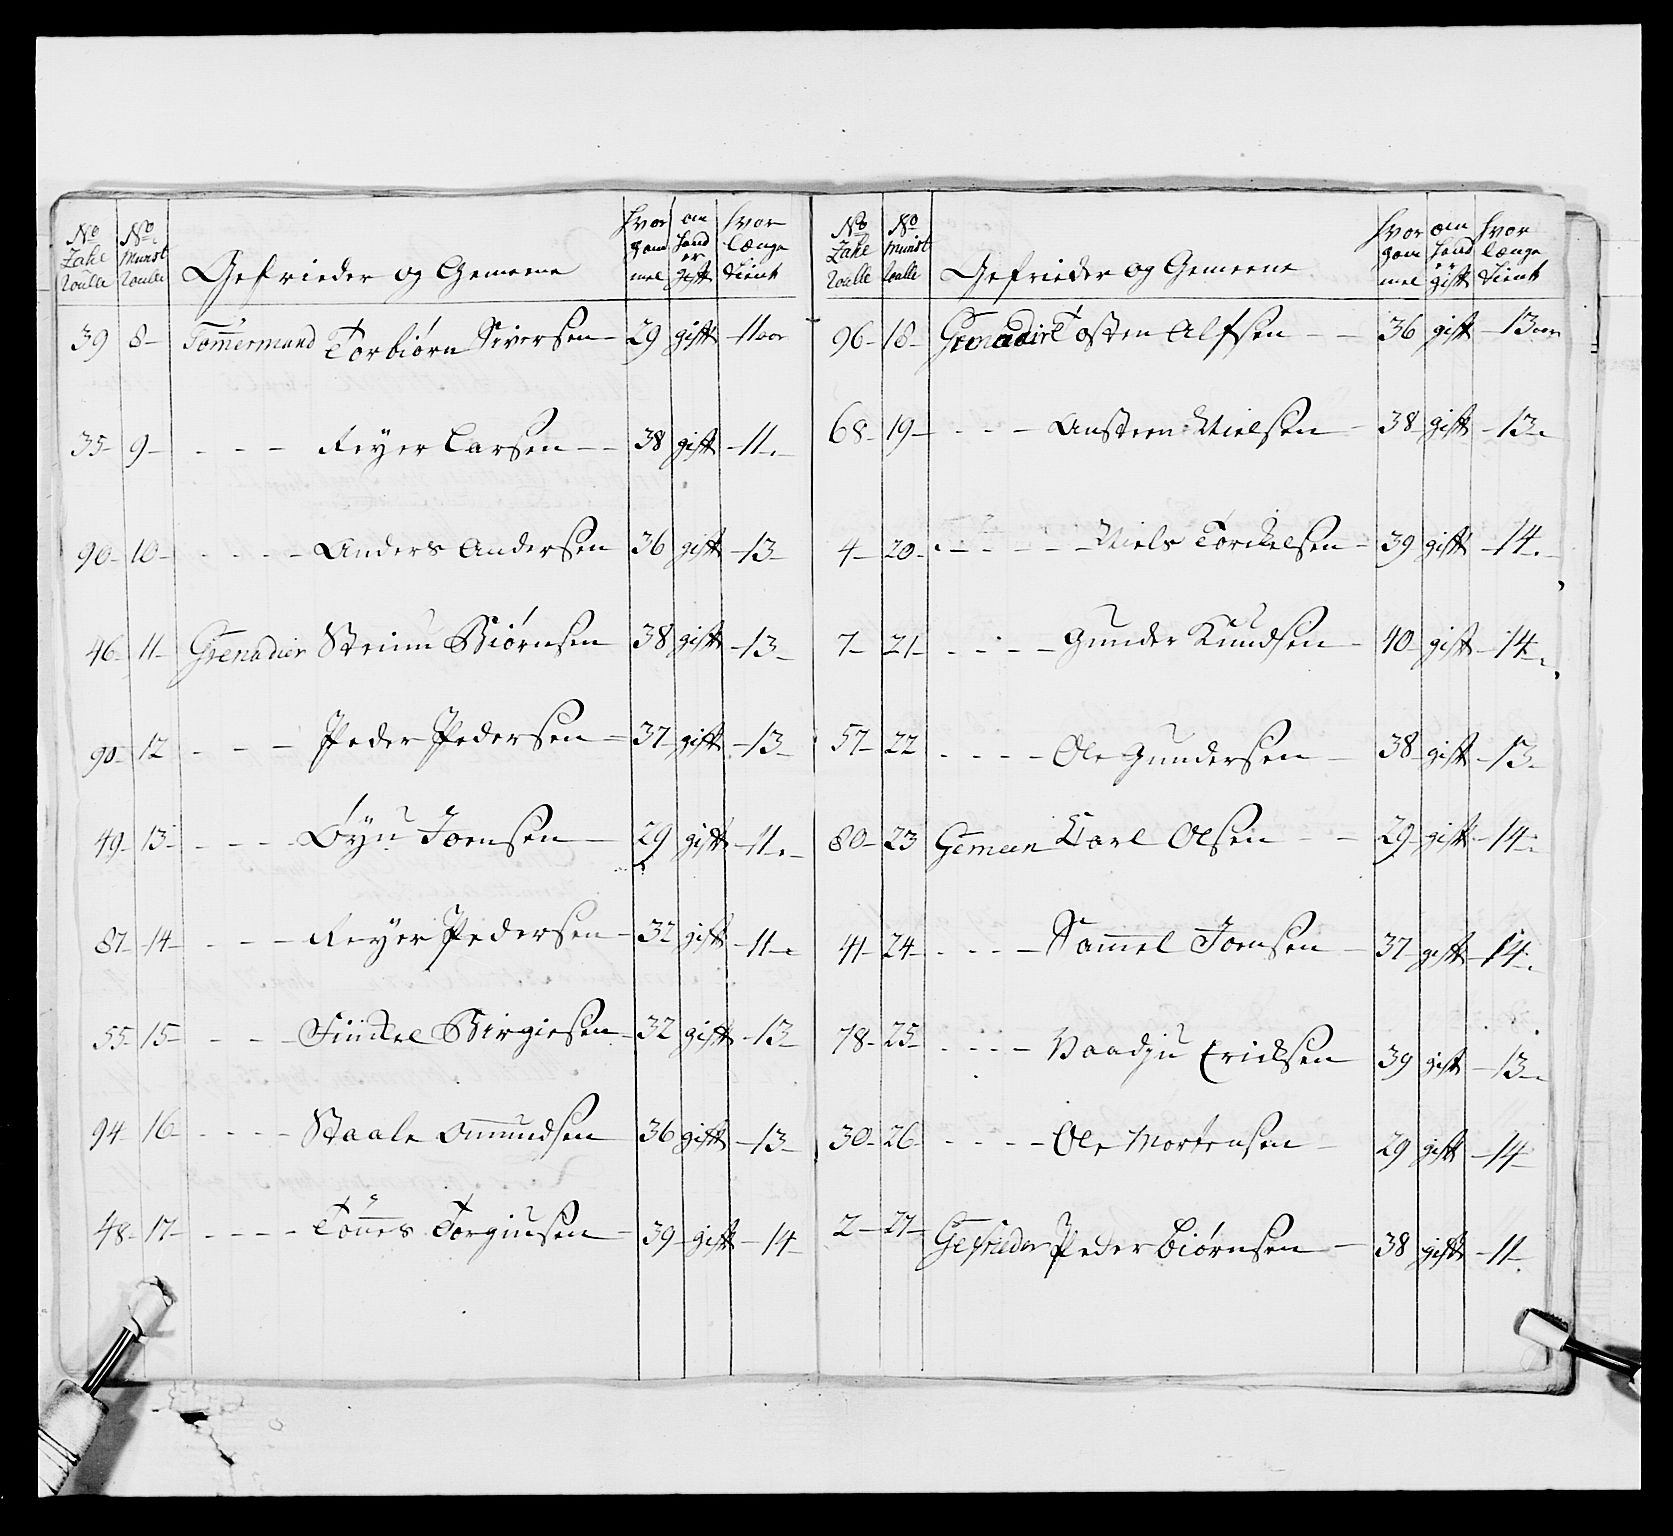 No Zahl Roulle | No Munst Roulle | Gefrieder og Gemeene | Hvor gam mel | om hand er gift | Hvor længe tient
39 8 Tømmermand Torbiörn Siversen 29 gift 11 aar
35 9 - - - Reÿer Larsen 38 gift 11.
90 10 - - - Anders Andersen 36 gift 13
46 11 Grenadier Steinu Biörnsen 38 gift 13
90 12 - - - Peder Pedersen 37 gift 13
49 13 - - - Öÿu Joensen 29 gift 11.
87 14 - - - Reÿer Pedersen 32 gift 11.
55 15 - - - Finckel Birgiesen 32 gift 13
94 16 - - - Staale Omundsen 36 gift 13
48 17 - - - Tönnes Torgiusen 39 gift 14
No Zahl Roulle | No Munst Roulle | Gefrieder og Gemeene | Hvor gam mel | om hand er gift | Hvor længe tient
96 18 Grenadier Tosten Alfsen 36 gift 13 aar
68 19 - - - Austeen Nielsen 38 gift 13.
4 20 - - - Niels Torckelsen 39 gift 14.
7 21 - - - Gunder Knudsen 40 gift 14.
57 22 - - - Ole Gundersen 38 gift 13.
80 23 Gemeen Carl Olsen 29 gift 14.
41 24 - - - Sammel Joensen 37 gift 14.
78 25 - - - Vaadju Ericksen 39 gift 13.
30 26 - - - Ole Mortensen 29 gift 14
2 27 Gefrieder Peder Biörnsen 38 gift 11.